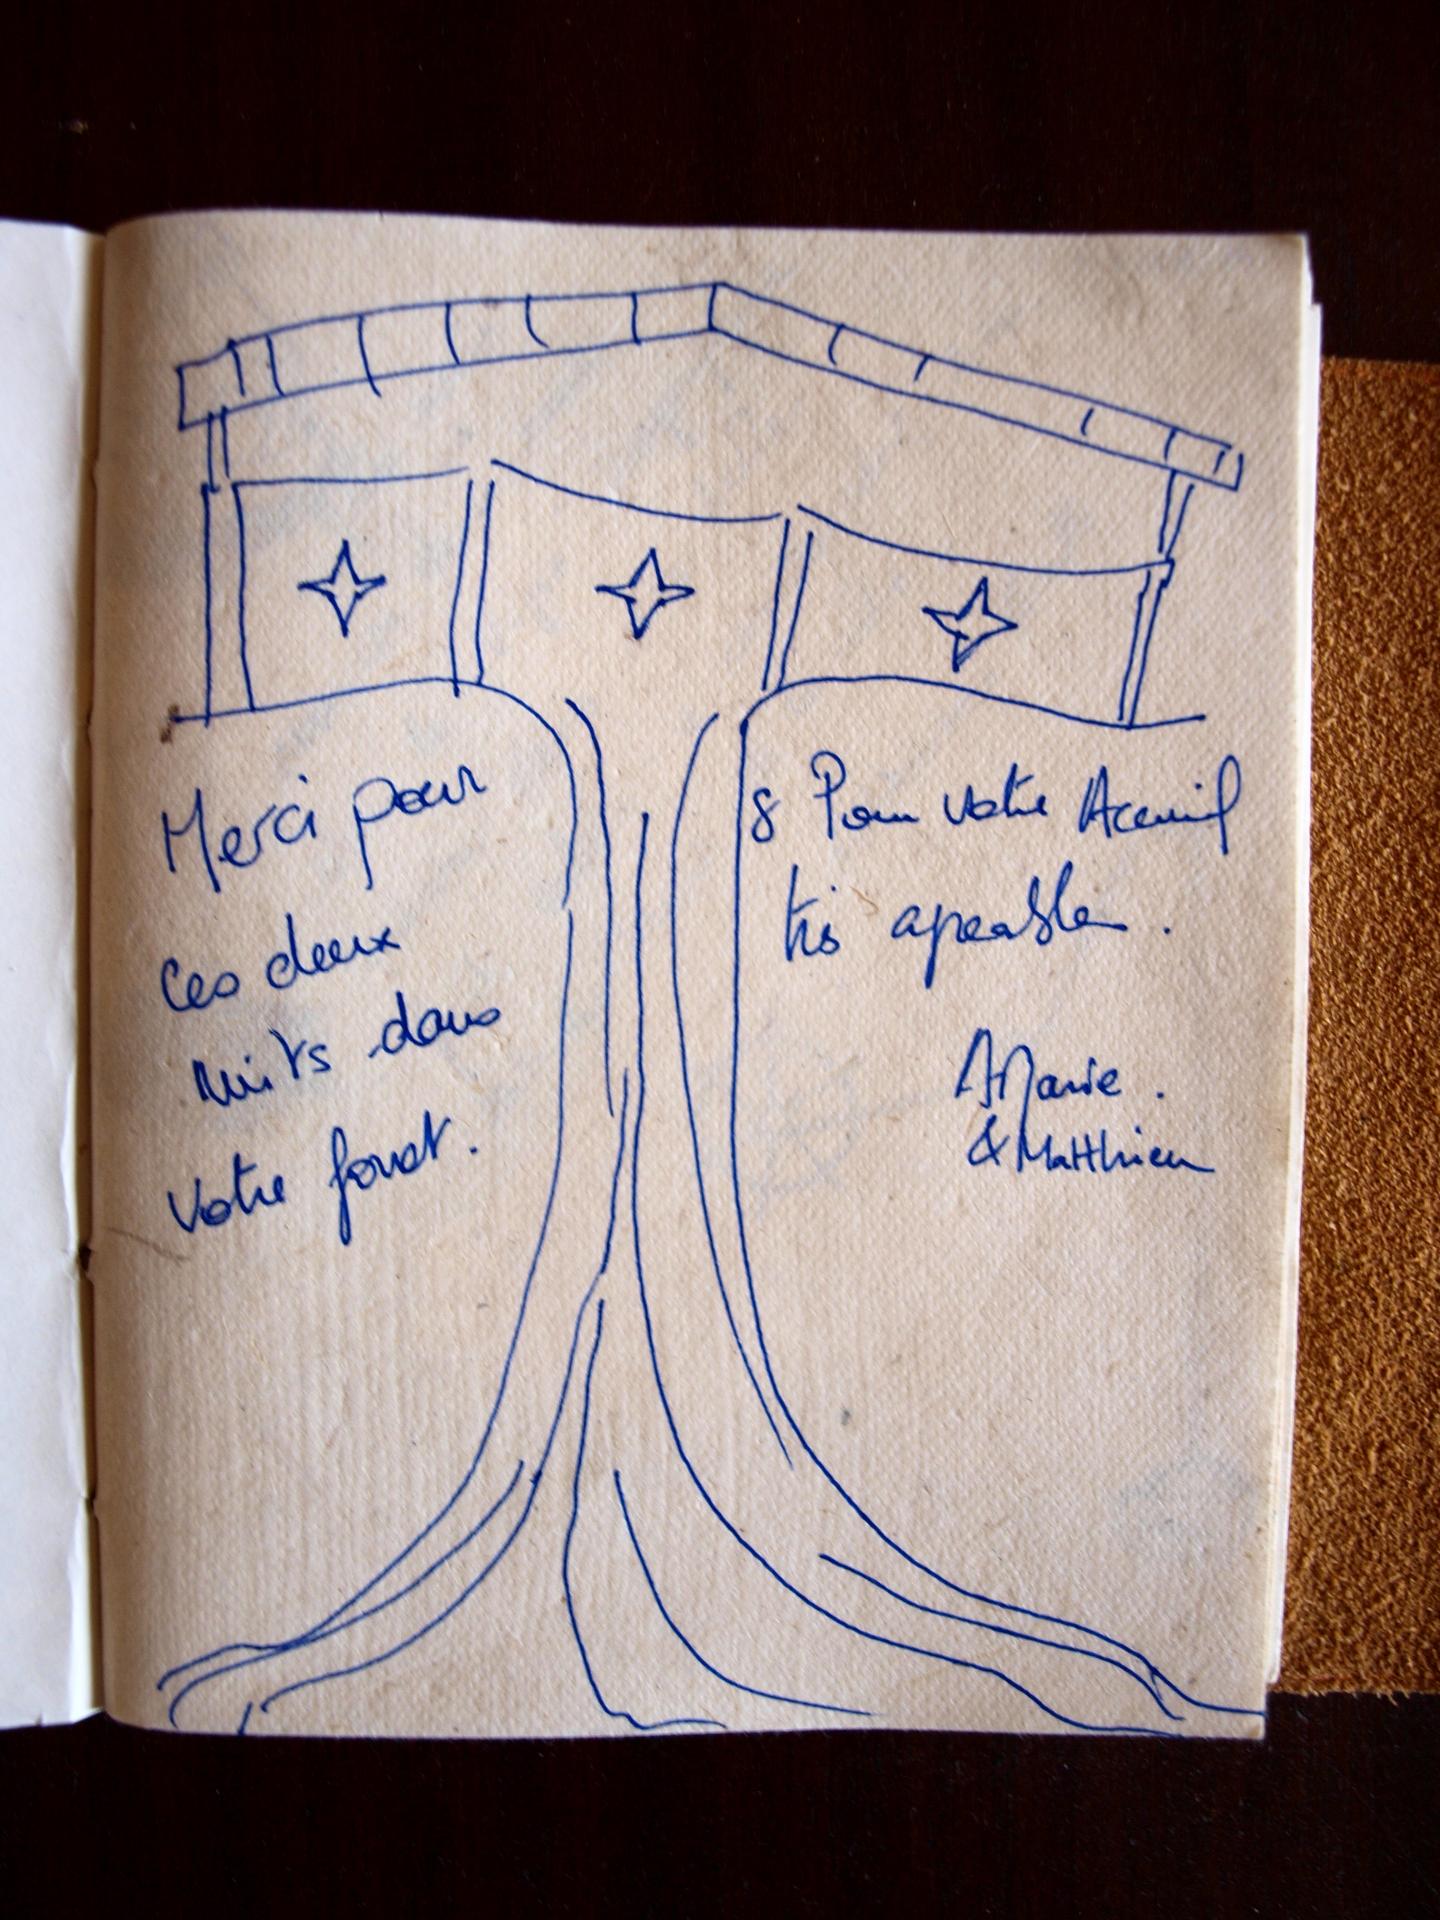 Merci pour
ces deux
nuits dans
votre foret.
& Pour votre Acceuil
très agreable.
Marie.
& Matthieu